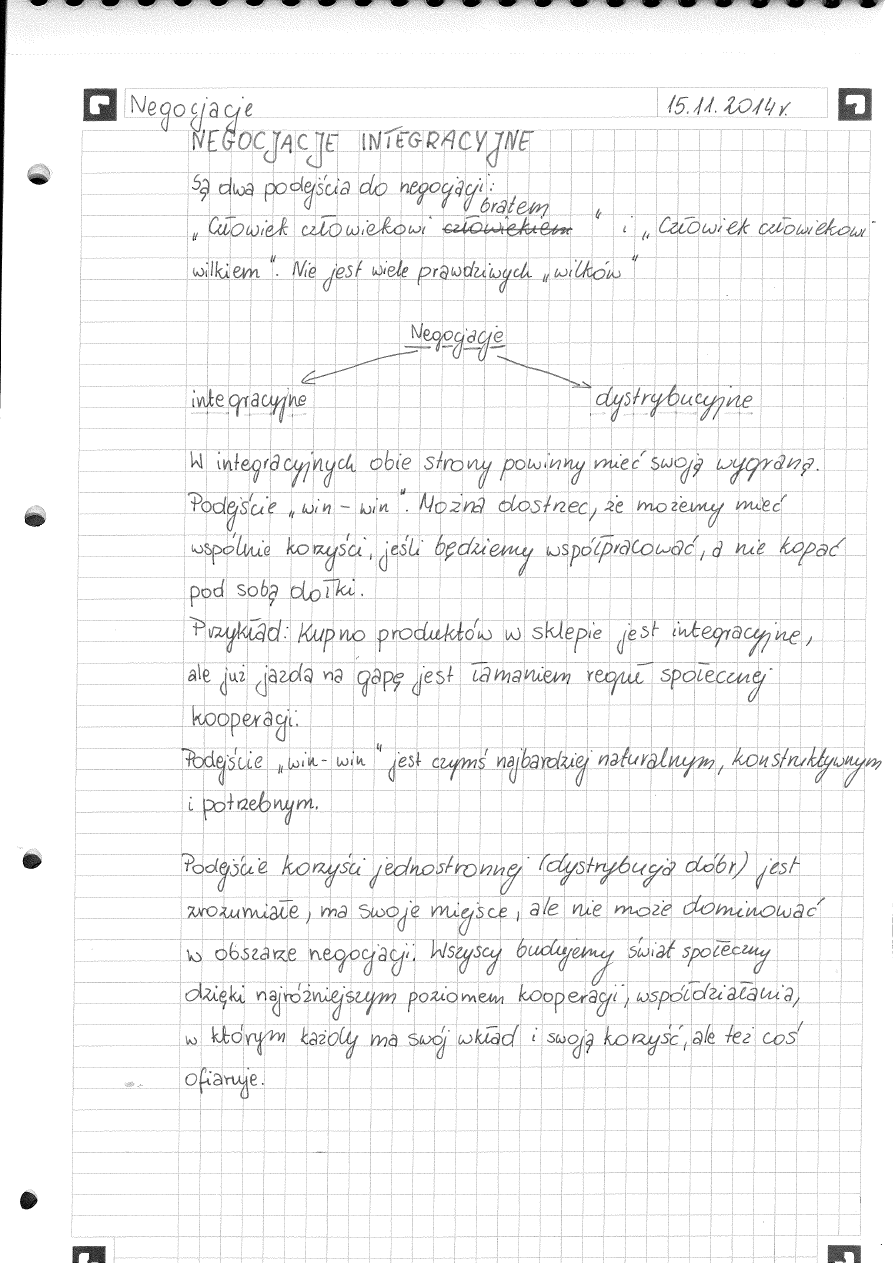 Negocjacje 15.11.2014r.
NEGOCJACJE INTEGRACYJNE
Są dwa podejścia do negocjacji:
bratem
„Człowiek człowiekowi człowiekiem" i „Człowiek człowiekowi
wilkiem". Nie jest wiele prawdziwych „wilków"
Negocjacje
integracyjne dystrybucyjne
W integracyjnych obie strony powinny mieć swoją wygraną.
Podejście „win-win". Można dostrzec, że możemy mieć
wspólnie korzyści, jeśli będziemy współpracować, a nie kopać
pod sobą dołki.
Przykład: Kupno produktów w sklepie jest integracyjne,
ale już jazda na gapę jest łamaniem reguł społecznej
kooperacji.
Podejście „win-win" jest czymś najbardziej naturalnym, konstruktywnym
i potrzebnym.
Podejście korzyści jednostronnej (dystrybucja dóbr) jest
zrozumiałe, ma swoje miejsce, ale nie może dominować
w obszarze negocjacji. Wszyscy budujemy świat społeczny
dzięki najróżniejszym poziomem kooperacji, współdziałania,
w którym każdy ma swój wkład i swoją korzyść, ale też coś
ofiaruje.